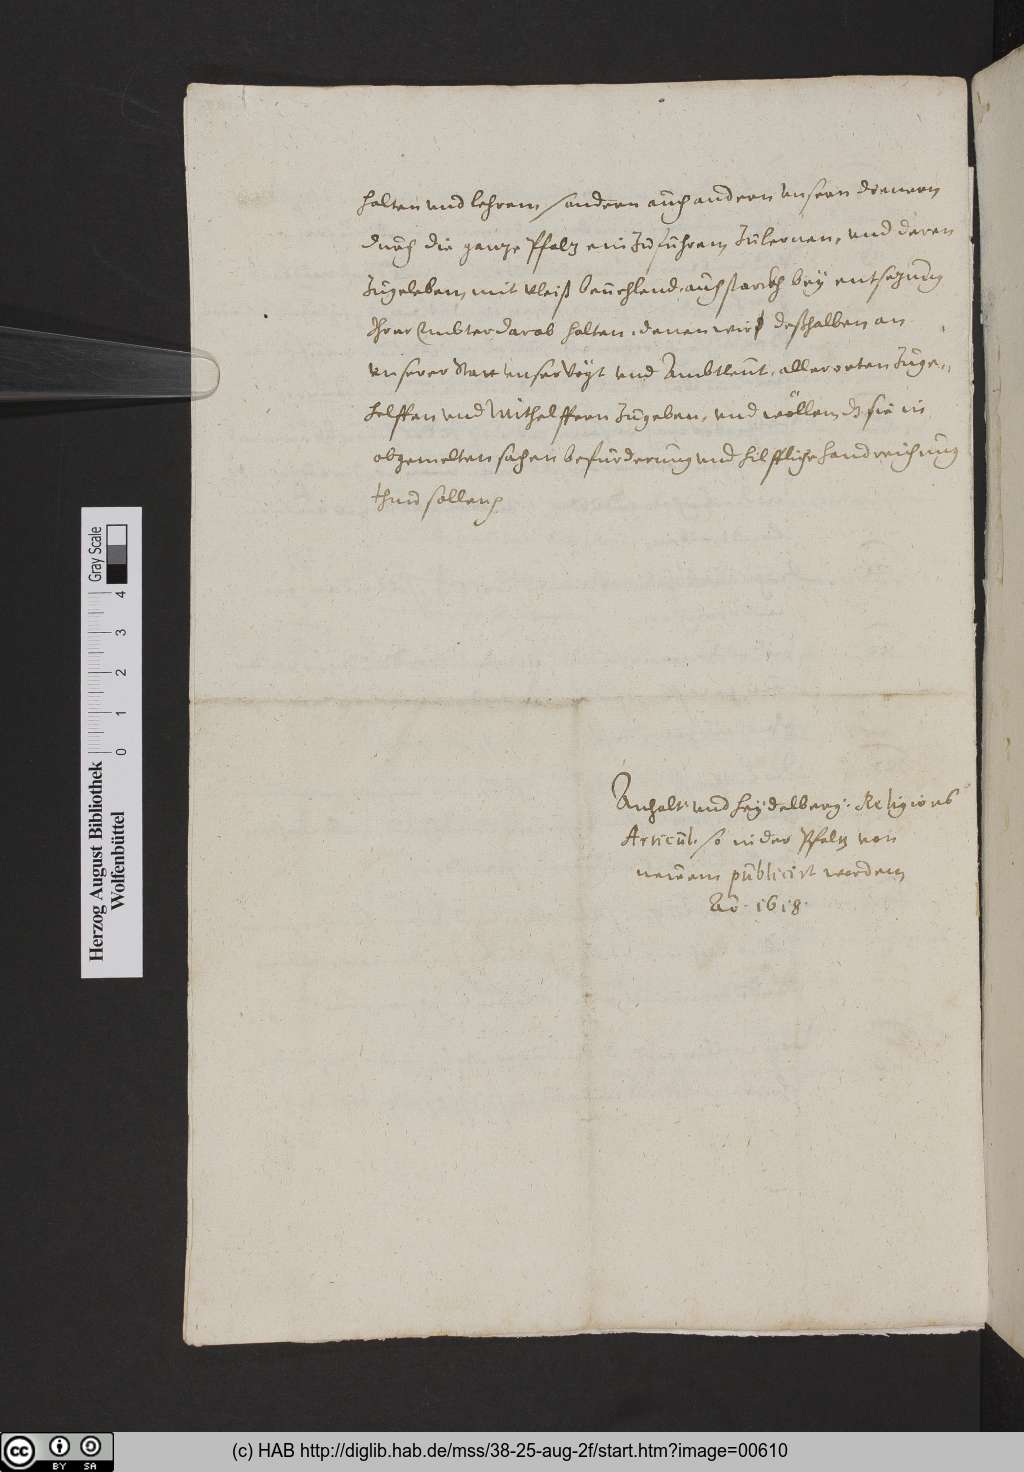 halten und lehren, sondern auch andern unsern dienern
durch die ganze Pfaltz ein Zuführen, Zulernen, und deren
Zugeleben mit vleiß beuehlend, auch starckh bey entsezung
Ihrer Ambter darob halten, denen wir deßhalben an
unserer Statt unser Vögt und Ambtleut, allerorten Zuge-
helffen und Mithelffern Zugeben, und wöllen, dz sie in
obgemelten sachen befürderung und hilffliche handreichung
thun sollen
Anhalt: und Heydelberg: Religions
Articul, so in der Pfaltz von
newem publicirt worden
Ao. 1618.
Herzog August Bibliothek
Wolfenbüttel
0 1 2 3 4
Gray Scale
cc BY SA
(c) HAB http://diglib.hab.de/mss/38-25-aug-2f/start.htm?image=00610